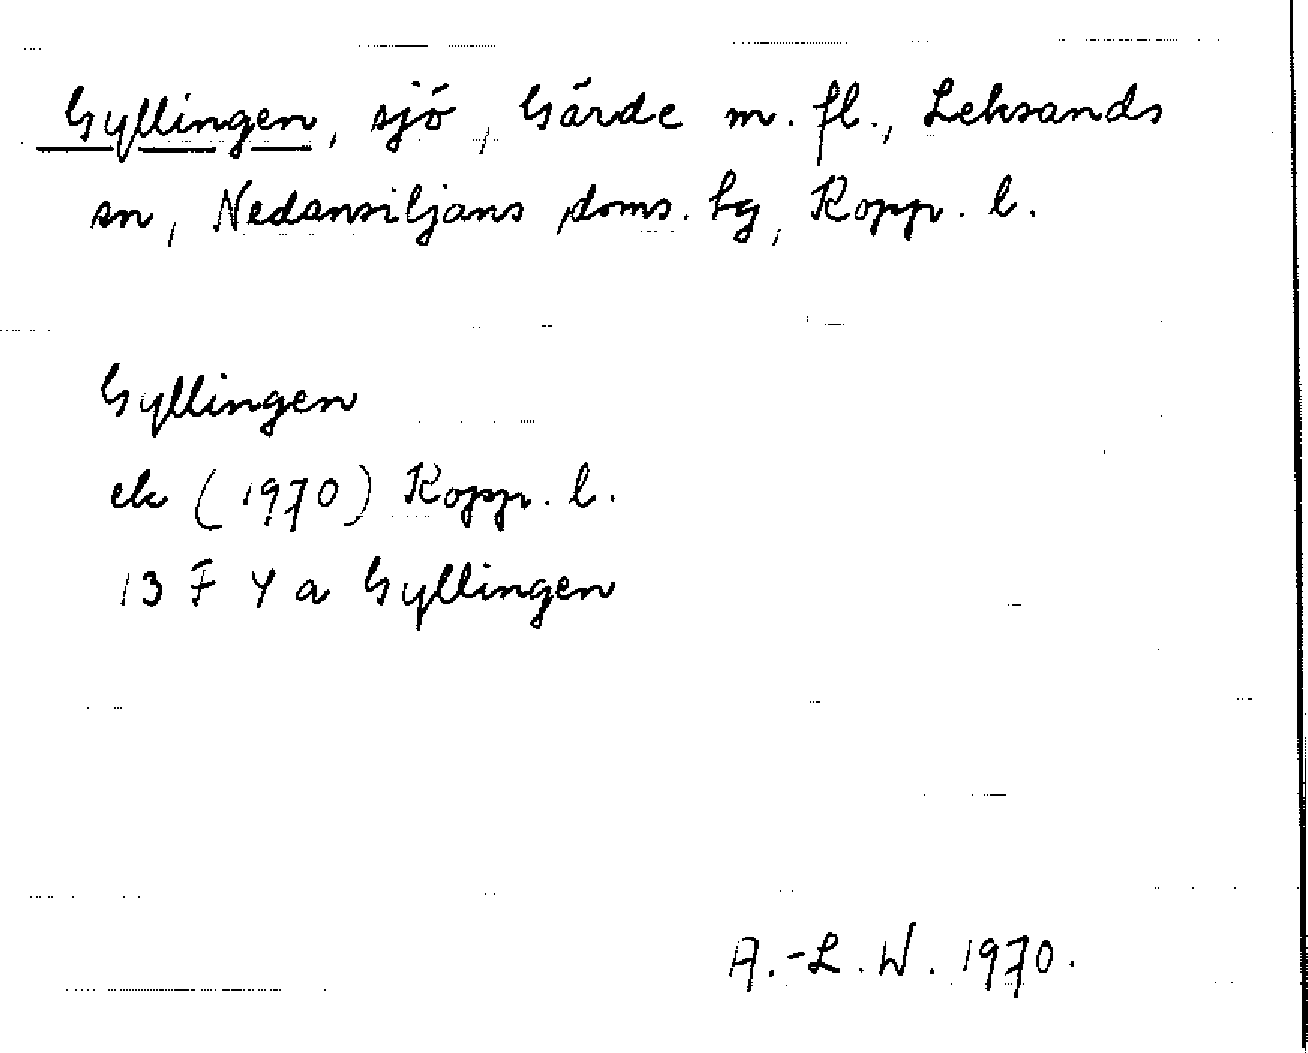 Gyllingen, sjö, Gärde m. fl., Leksands
sn, Nedansiljans doms. tg, Kopp. l.
Gyllingen
ek (1970) Kopp. l.
13 F 4 a Gyllingen
A.-L. W. 1970.